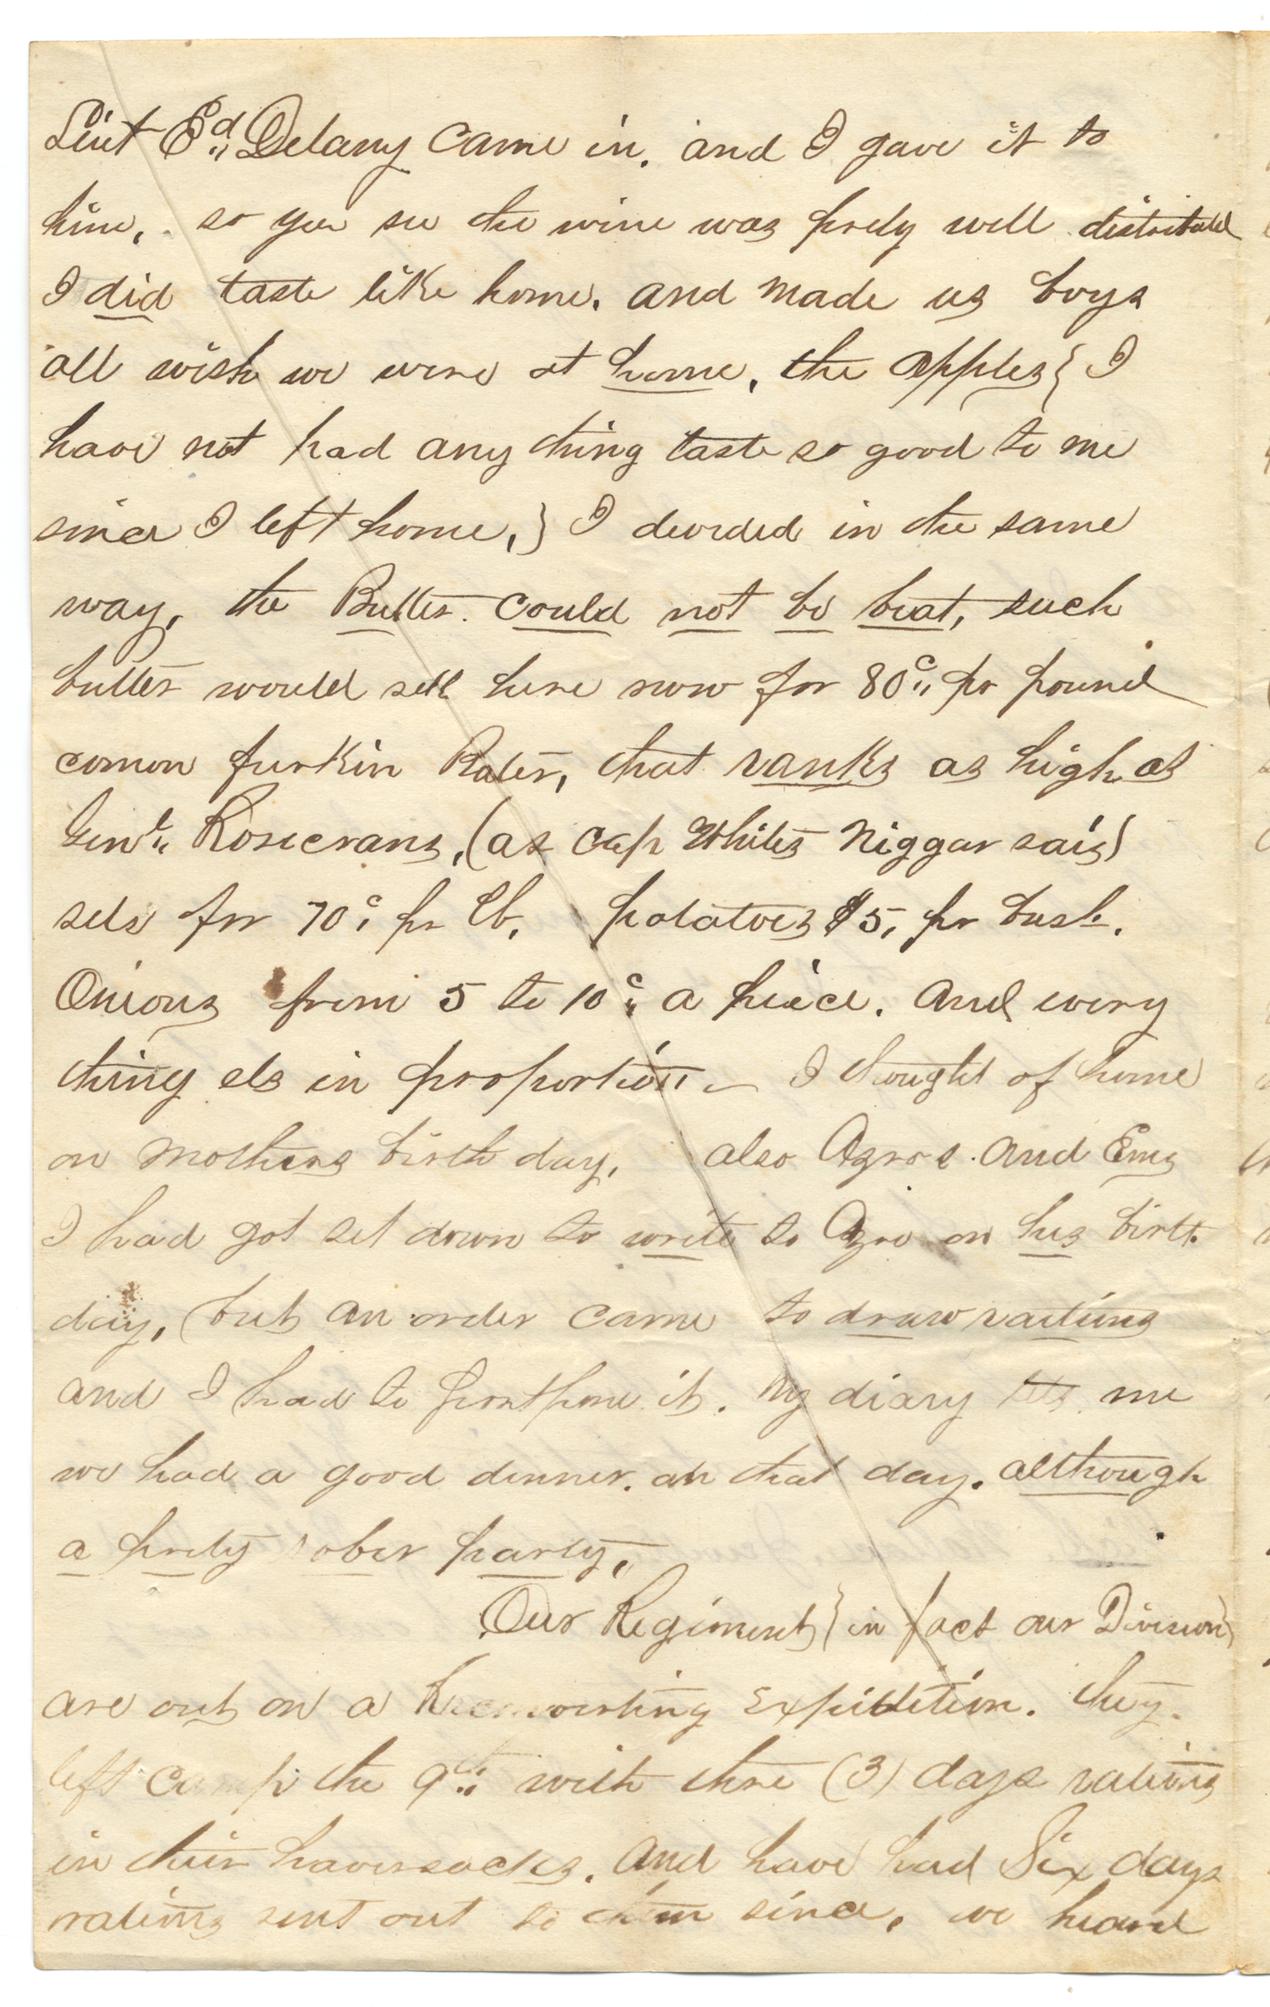 Leut Ed,, Delany came in, and I gave it to
him, so you see the wine was prety well distributed
I did taste like home, and made us boys
all wish we were at home, the apples { I
have not had any thing taste so good to me
since I left home, } I devided in the same
way, the Butter could not be beat, such
butter would sell here now for 80c,, pr pound
comon furkin Buter, that ranks as high as
Genl,, Rosecrans, (as cap Whites Niggar said)
sels for 70c, pr lb, potatoes $5, pr bush.
Onions from 5 to 10c,, a piece. And every
thing els in proportion - I thought of home
on Mothers birth day, also Azros. And Ems
I had got set down to write to Azro on his birth
day, but an order came to draw rations
and I had to postpone it. My diary tels me
we had a good dinner. on that day. although
a prety sober party,
Our Regiment { in fact our Division }
are out on a Reconoitring Expidition. they
left camp the 9th,, with thre (3) days rations
in their haversacks, And have had Six days
rations sent out to them since, we heard